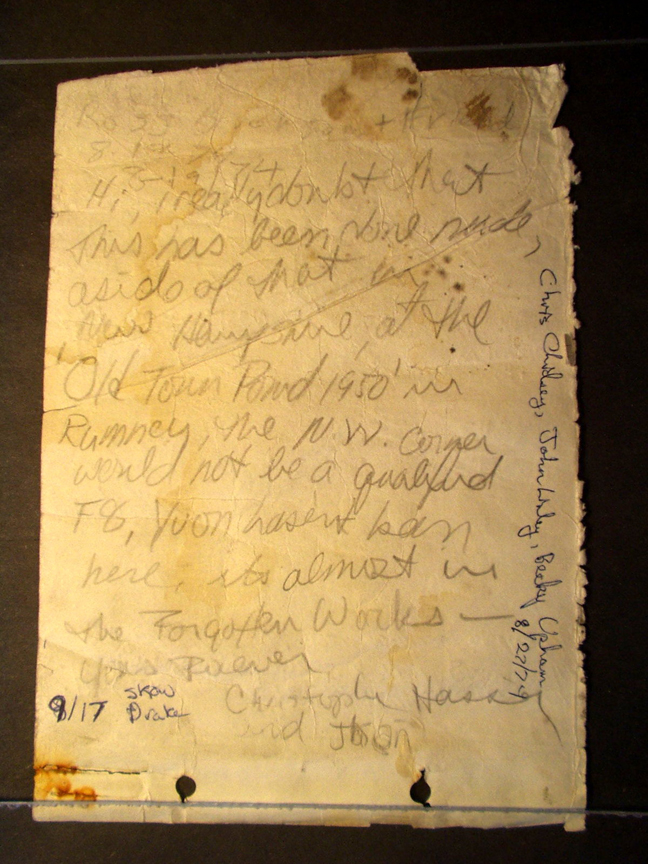 Ross
Hi, I really doubt that
this has been done nude,
aside of that in
New Hampshire, at the
'Old Town Pound 1950' in
Rumney, the N.W. Corner
would not be a qualifyd
F8, Yvon hasent ban
here, its almost in
the Forgotten Works —
Yours Forever
Christopher Hass
and
9/17 Skow
Drake
Chris Chidsey, John Lisley, Becky Upham
8/27/74